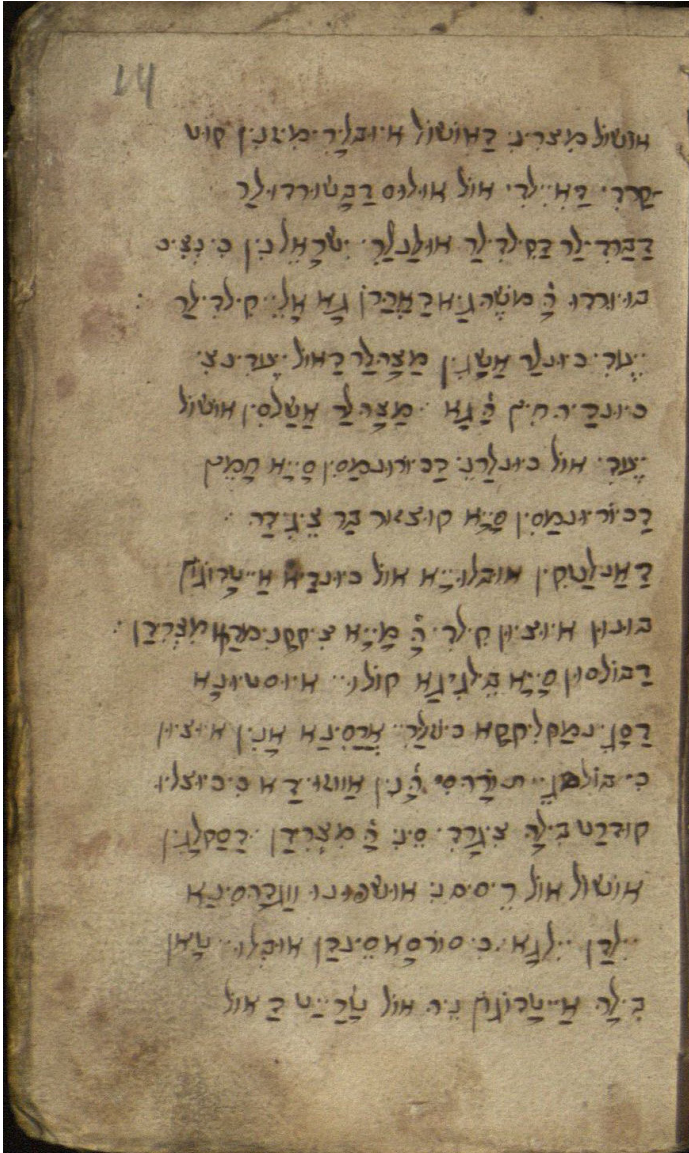 14
אוֹשוֹל מִצרִינִי דַאוֹשוֹל אִיוּבלָרִי מִיגנִין קוּט
קַרדִי דַאִיילִרִי אוֹל אוּלוּס דַבָשוּרדוּלַר
דַבַרדִילַר דַקִילדִילַר אוּלַנלַרִי יִשׂרָאֵלנִין כִּינִצִיכִּי
בוּיוּרדוּ הָ מֹשֶה גָא דַאַהֲרֹן גָא אָלֵיי קִילדִילַר׃
יָצוּרִי כִּיוּנלַר אַשָנִין מַצָהלַר דַאוֹל יָצוּרִינצִי
כִּיוּנדָ יוֹם חַג הָ גָא מַצָהלַר אַשַלסִין אוּשוֹל
יָצוּרִי אוֹל כִּיוּנלַרנִי דַכִּיוֹרוּנמַסִין סָיָיא חָמֵץ
דַכִּיוֹרוּנמַסִין סָיָיא קוּצגוּר בַר צֵיגִינדַה׃
דַאַנלַטקִין אוּבלוּיָיא אוֹל כִּיוּנדָא אַייטָדוֹגוֹן
בוּנוּן אִיוּצִיוּן קִילדִי הָ מָיָיא צִיקקַנִימדַן מִצרִידַן׃
דַבוֹלסוּן סָיָיא בֵילגִיגָא קוֹלוּיי אִיוּסטוּנָא
דַסָגִינמַקלִיקקָא כִּיוֹזלַרִיי אָרָסִינָא אָנִין אִיוּצִיוּן
כִּי בוֹלסָגֵיי תּוֹרָהסִי הָנִין אַווזוּיידָא כִּי כִּיוּצלִיוּ
קוּדרַט בִילָה צִיגָרדִי סֵינִי הָ מִצרִידַן דַסַקלַגִין
אוֹשוֹל אוֹל רֵיסִימנִי אוּשפוּנוּ וַוגדָהסִינָא
יִילדַן יִילגָא כִּי סוֹרסָא סֵינדַן אוּבלוּיי טָאן
בִילָה אַייטָדוֹגוֹן נֵיה אוֹל טַרַייַט דַאוֹל